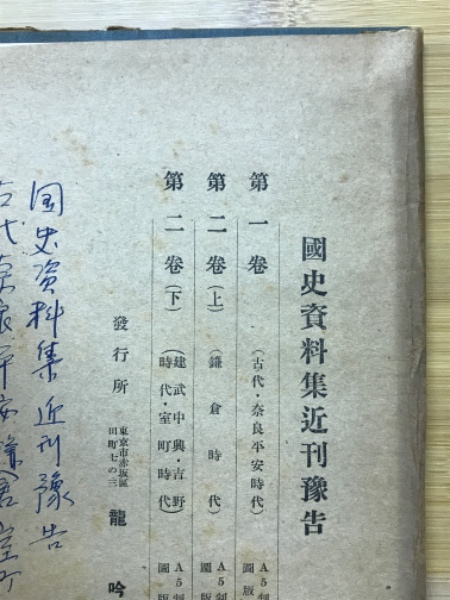 國史資料集近刊豫告
第一卷（古代・奈良平安時代）A5判
圖版
第二卷（上）（鎌倉時代）A5判
圖版
第二卷（下）（建武中興・吉野
時代・室町時代）A5判
圖版
發行所 東京市赤坂區
田町七の三 龍吟
国史資料集近刊豫告
古代奈良平安鎌倉室町